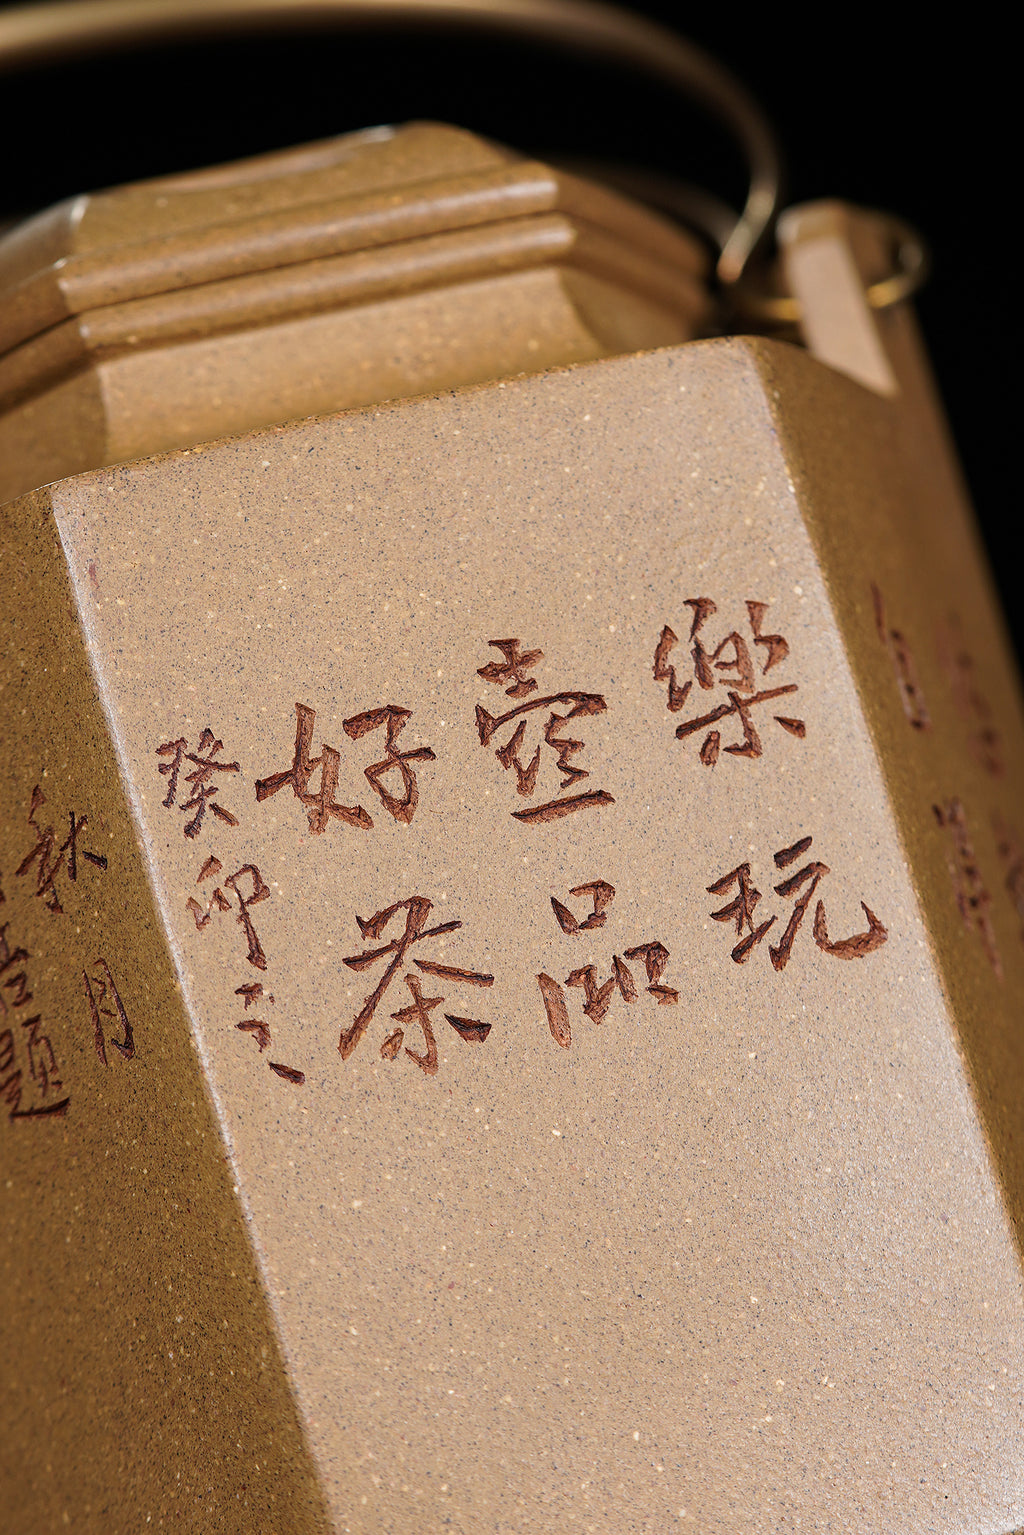 樂玩
壺品
好茶
癸卯之
秋月